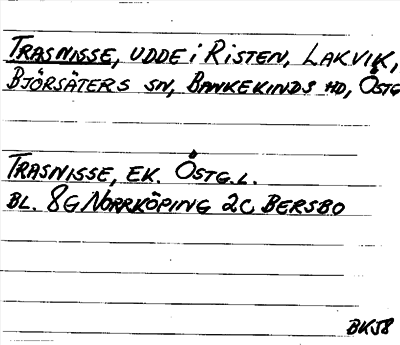 TRASNISSE, UDDE i RISTEN, LAKVIK,
BJÖRSÄTERS SN, BANKEKINDS HD, ÖSTG
TRASNISSE, EK. ÖSTG.L.
BL. 8G NORRKÖPING 2C BERSBO
BK58